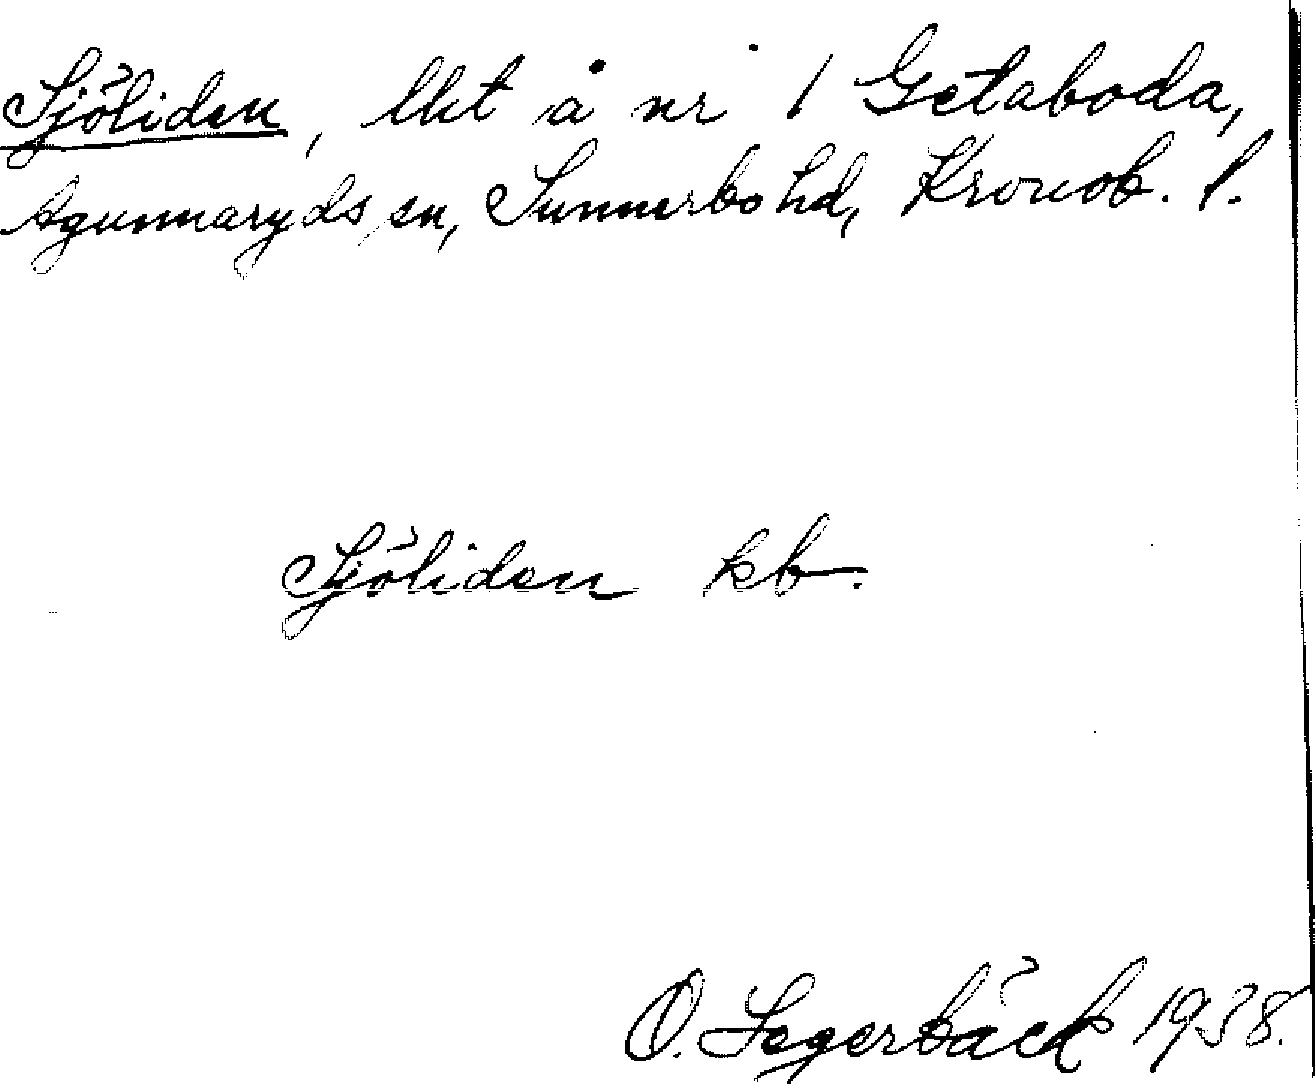 Sjöliden, lht å nr 1 Getaboda,
Agunnaryds sn, Sunnerbo hd, Kronob. l.
Sjöliden kb.
O. Segerbäck 1938.